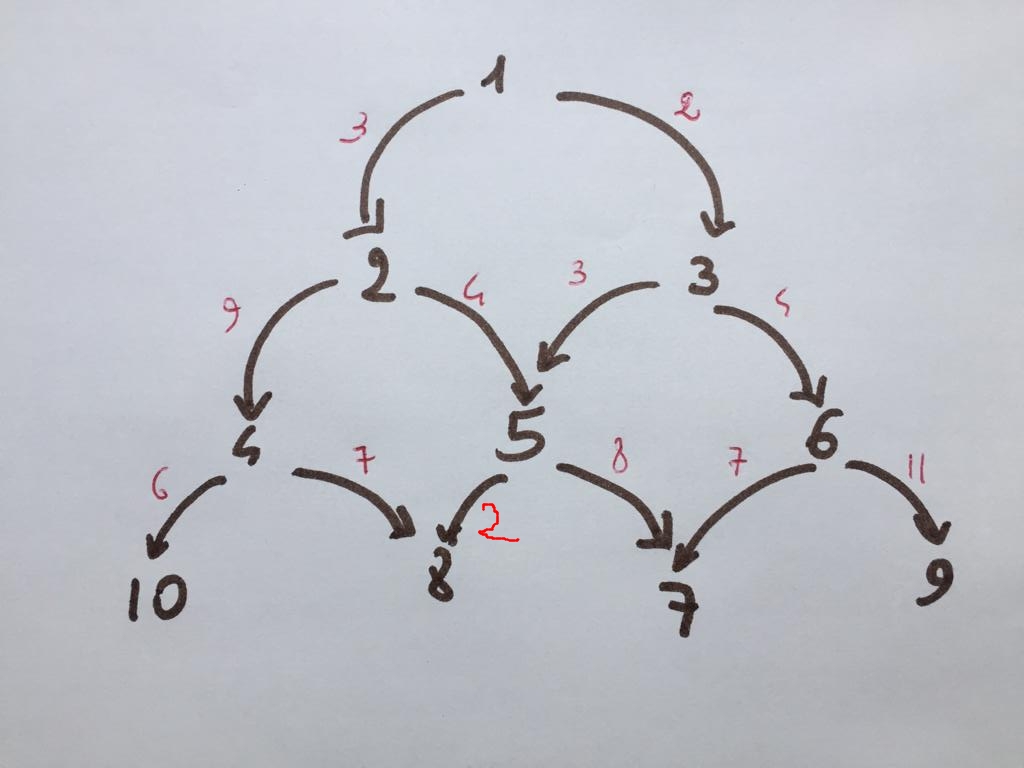 1
3 2
2 3
9 4 3 4
4 5 6
6 7 2 8 7 11
10 8 7 9